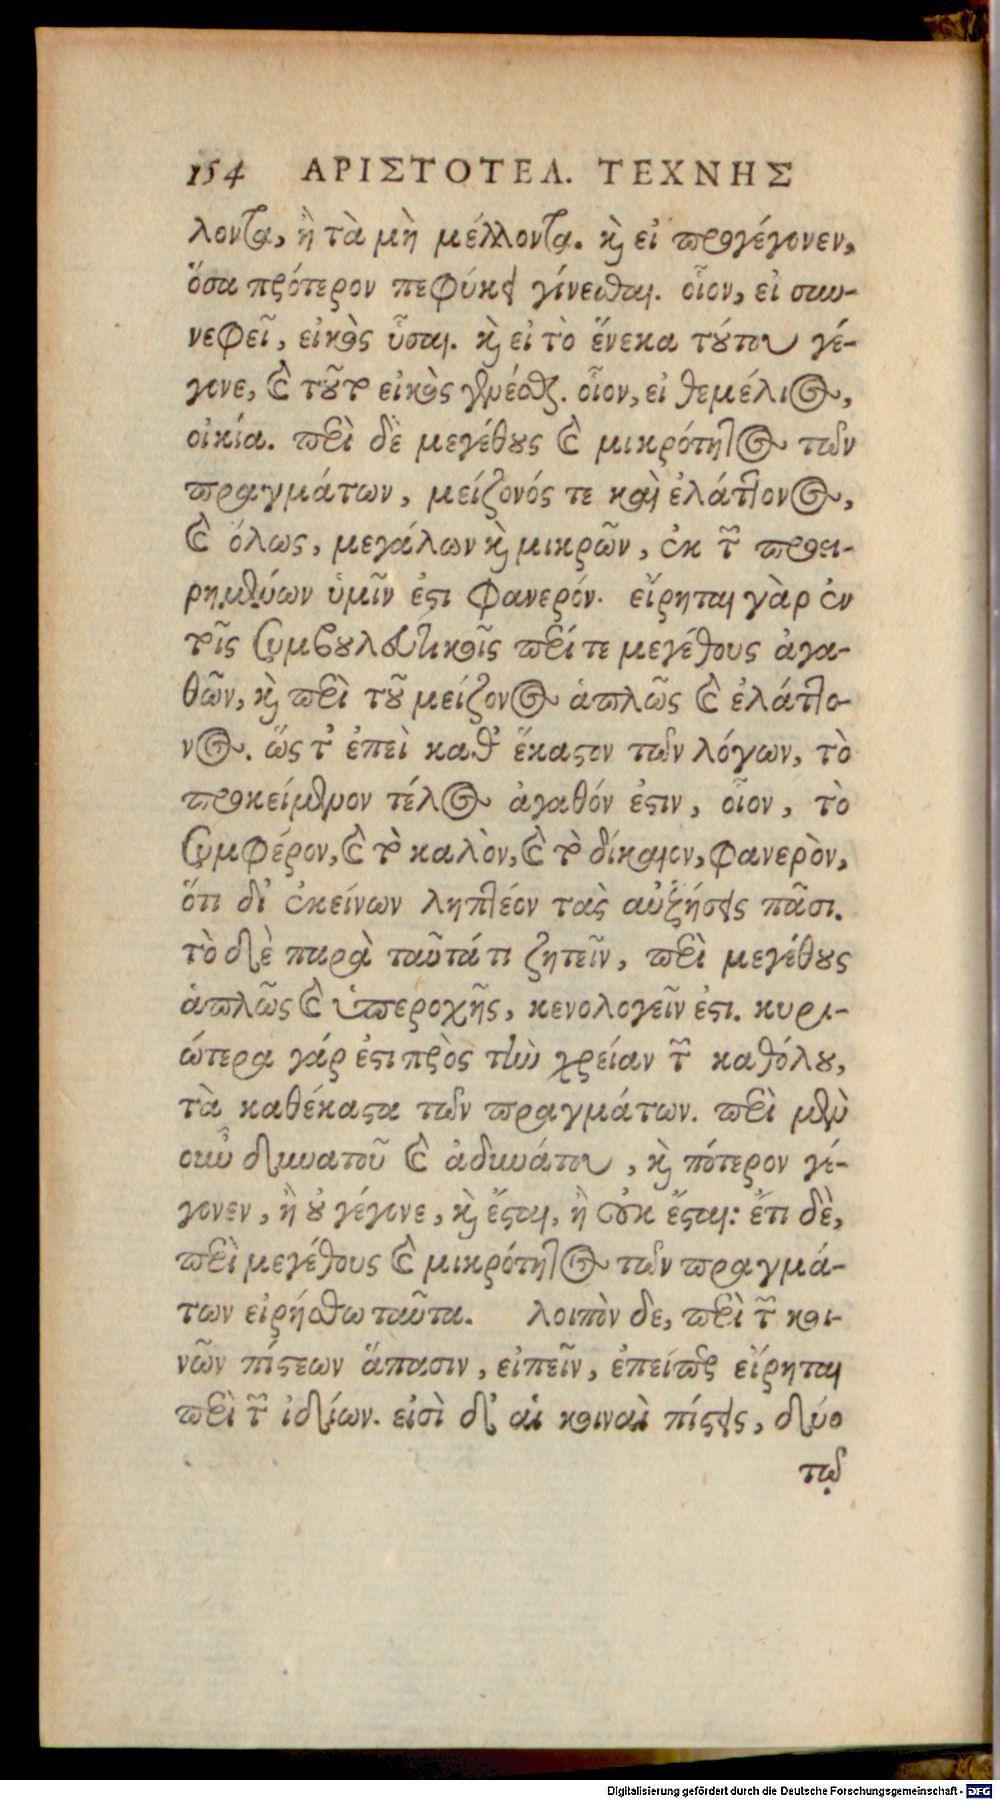 154 ΑΡΙΣΤΟΤΕΛ. ΤΕΧΝΗΣ
λοντα, ἢ τὰ μὴ μέλλοντα. καὶ εἰ προγέγονεν,
ὅσα πρότερον πεφύκει γίνεσθαι. οἷον, εἰ συν-
νεφεῖ, εἰκὸς ὗσαι. καὶ εἰ τὸ ἕνεκα τούτου γέ-
γονε, καὶ τοῦτο εἰκὸς γενέσθαι. οἷον, εἰ θεμέλιος,
οἰκία. περὶ δὲ μεγέθους καὶ μικρότητος τῶν
πραγμάτων, μείζονός τε καὶ ἐλάττονος,
καὶ ὅλως, μεγάλων καὶ μικρῶν, ἐκ τῶν προει-
ρημένων ὑμῖν ἐστι φανερόν. εἴρηται γὰρ ἐν
τοῖς συμβουλευτικοῖς περί τε μεγέθους ἀγα-
θῶν, καὶ περὶ τοῦ μείζονος ἁπλῶς καὶ ἐλάττο-
νος. ὥς τ' ἐπεὶ καθ' ἕκαστον τῶν λόγων, τὸ
προκείμενον τέλος ἀγαθόν ἐστιν, οἷον, τὸ
συμφέρον, καὶ τὸ καλὸν, καὶ τὸ δίκαιον, φανερὸν,
ὅτι δι' ἐκείνων ληπτέον τὰς αὐξήσεις πᾶσι.
τὸ δὲ παρὰ ταῦτά τι ζητεῖν, περὶ μεγέθους
ἁπλῶς καὶ ὑπεροχῆς, κενολογεῖν ἐστι. κυρι-
ώτερα γάρ ἐστι πρὸς τὴν χρείαν τῶν καθόλου,
τὰ καθέκαστα τῶν πραγμάτων. περὶ μὲν
οὖν δυνατοῦ καὶ ἀδυνάτου, καὶ πότερον γέ-
γονεν, ἢ οὐ γέγονε, καὶ ἔσται, ἢ οὐκ ἔσται: ἔτι δὲ,
περὶ μεγέθους καὶ μικρότητος τῶν πραγμά-
των εἰρήσθω ταῦτα. λοιπὸν δε, περὶ τῶν κοι-
νῶν πίστεων ἅπασιν, εἰπεῖν, ἐπείπερ εἴρηται
περὶ τῶν ἰδίων. εἰσὶ δ' αἱ κοιναὶ πίστεις, δύο
τῷ
Digitalisierung gefördert durch die Deutsche Forschungsgemeinschaft - DFG